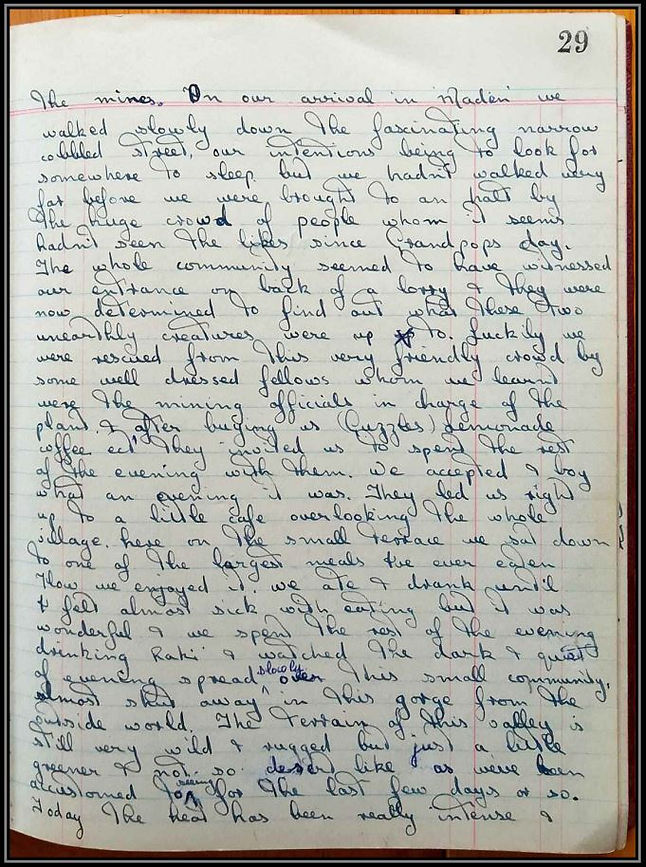 29
The mines. On our arrival in 'Maden' we
walked slowly down the fascinating narrow
cobbled street, our intentions being to look for
somewhere to sleep but we hadn't walked very
far before we were brought to an halt by
the huge crowd of people whom it seems
hadn't seen the likes since Grandpops day.
The whole community seemed to have witnessed
our entrance on back of a lorry & they were
now determined to find out what these two
unearthly creatures were up to. Luckily we
were rescued from this very friendly crowd by
some well dressed fellows whom we learnt
were the mining officials in charge of the
plant & after buying us (Guzzles) lemonade
coffee ect' they invited us to spend the rest
of the evening with them. We accepted & boy
what an evening it was. They led us right
up to a little cafe overlooking the whole
village. here on the small terrace we sat down
to one of the largest meals I've ever eaten
How we enjoyed it. we ate & drank until
I felt almost sick with eating but it was
wonderful & we spent the rest of the evening
drinking Raki & watched the dark & quiet
of evening spread slowly over this small community.
almost shut away in this gorge from the
outside world. The terrain of this valley is
still very wild & rugged but just a little
greener & not so desert like as we've been
accustomed to seeing for the last few days or so.
Today the heat has been really intense &